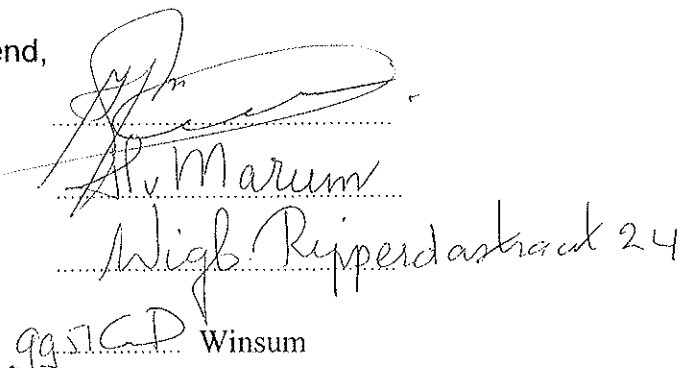 end,
v Marum
Wigb. Ripperdastraat 24
9951CD Winsum